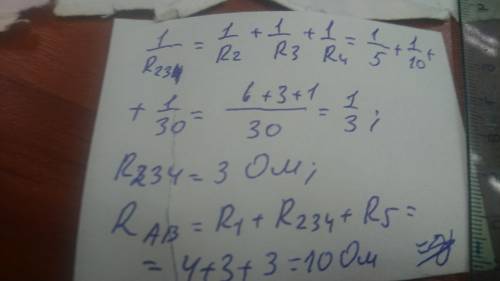 1/R234 = 1/R2 + 1/R3 + 1/R4 = 1/5 + 1/10 +
+ 1/30 = (6+3+1)/30 = 1/3 ;
R234 = 3 Ом;
R AB = R1 + R234 + R5 =
= 4+3+3 = 10 Ом